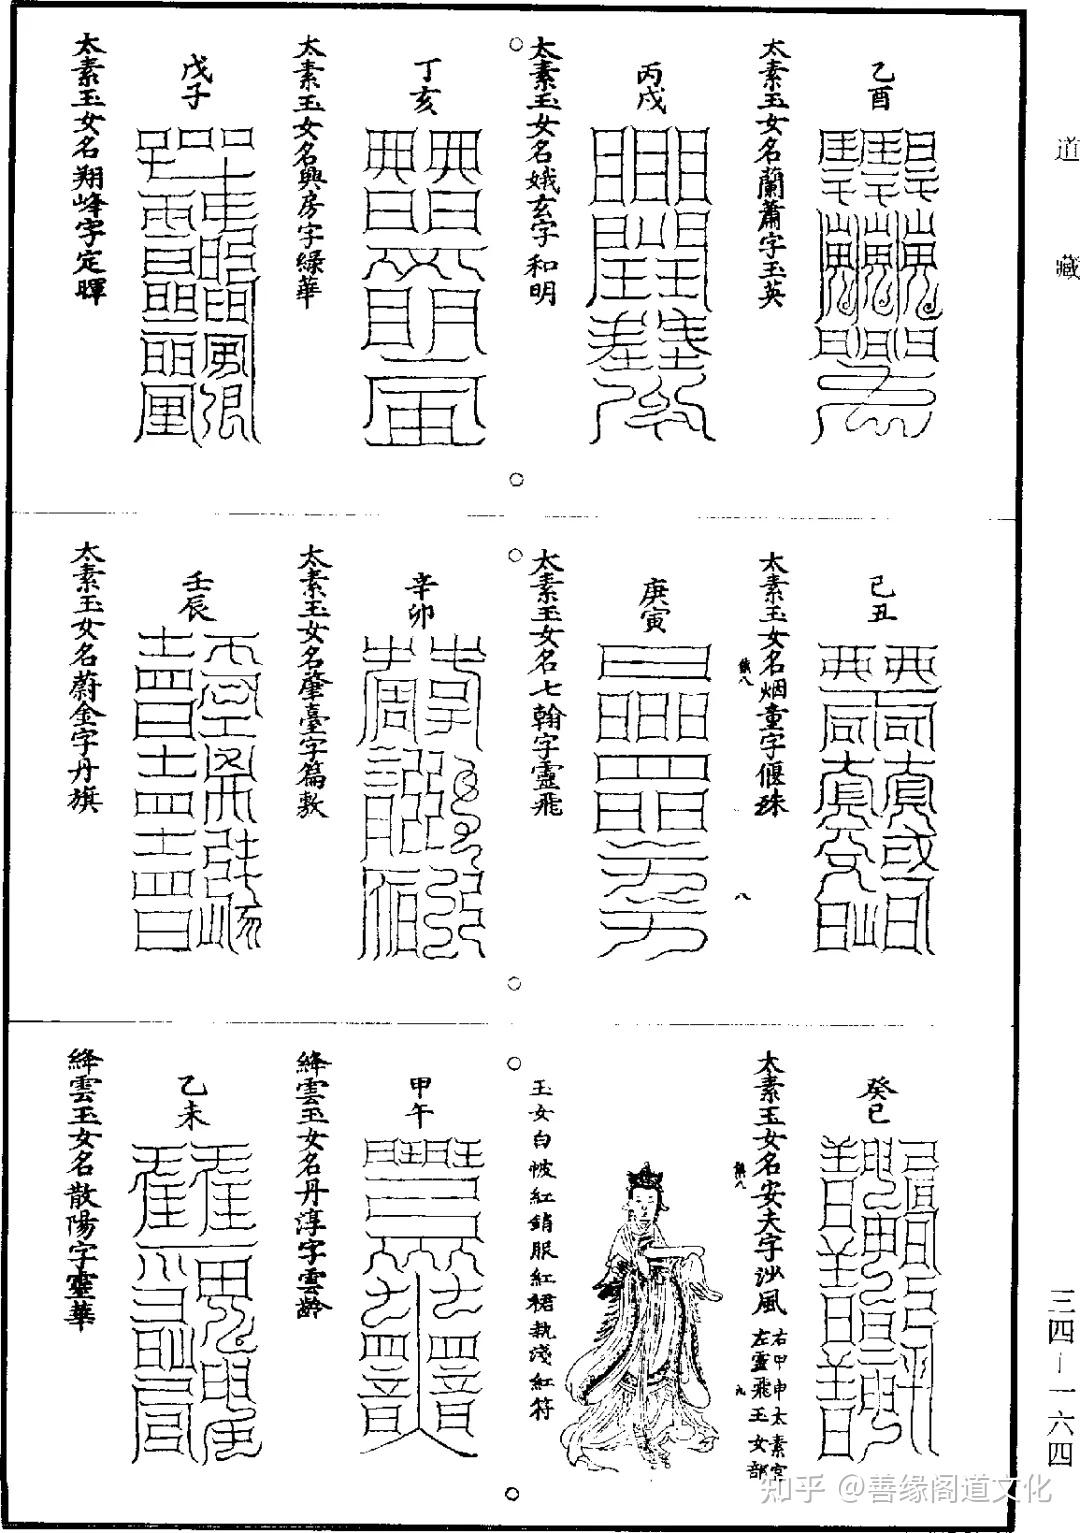 道藏
乙酉
太素玉女名蘭蕭字玉英
丙戌
太素玉女名娥玄字和明
丁亥
太素玉女名興房字綠華
戊子
太素玉女名翔峰字定暉
己丑
太素玉女名烟童字偃珠
八
庚寅
太素玉女名七翰字靈飛
辛卯
太素玉女名肇臺字篇敷
壬辰
太素玉女名蔚金字丹旗
癸巳
太素玉女名安夫字沙風
右甲申太素宮
左靈飛玉女部
玉女白帔紅銷服紅裙執淺紅符
甲午
絳雲玉女名丹淳字雲齡
乙未
絳雲玉女名散陽字靈華
三四–一六四
知乎 @善缘阁道文化